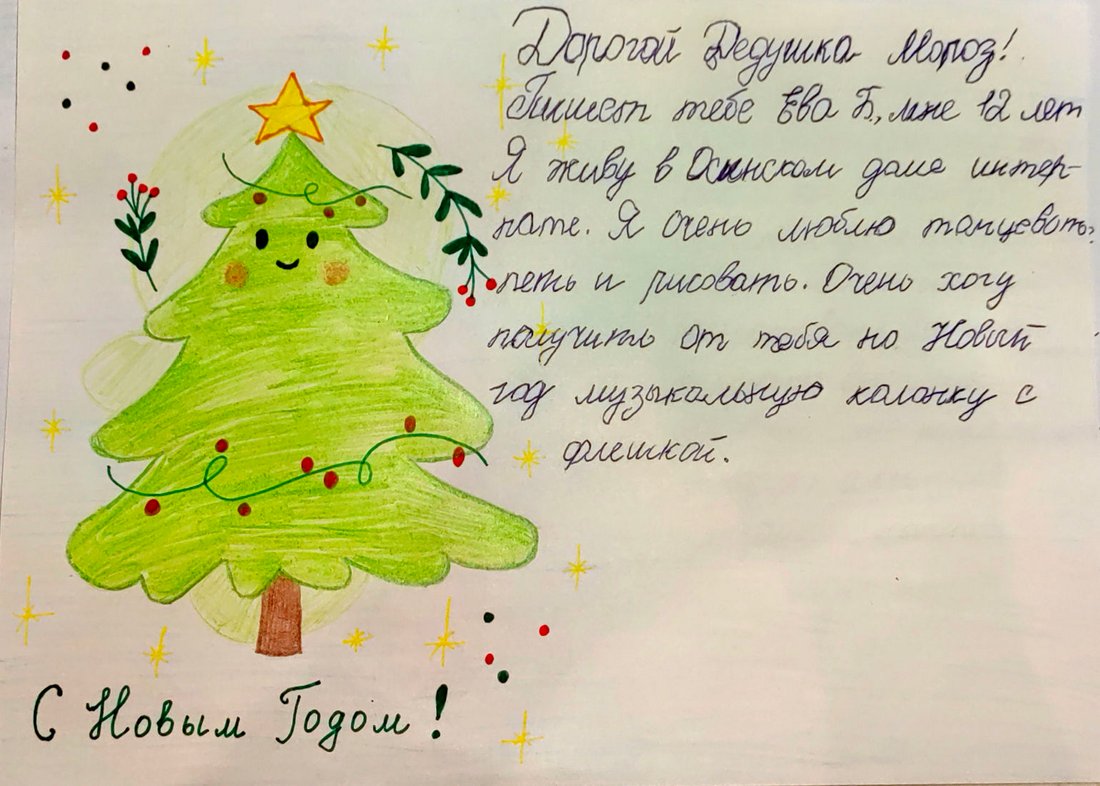 Дорогой Дедушка Мороз!
Пишет тебе Ева Б., мне 12 лет
Я живу в Осинском доме интер-
нате. Я очень люблю танцевать,
петь и рисовать. Очень хочу
получить от тебя на Новый
год музыкальную колонку с
флешкой.
С Новым Годом!